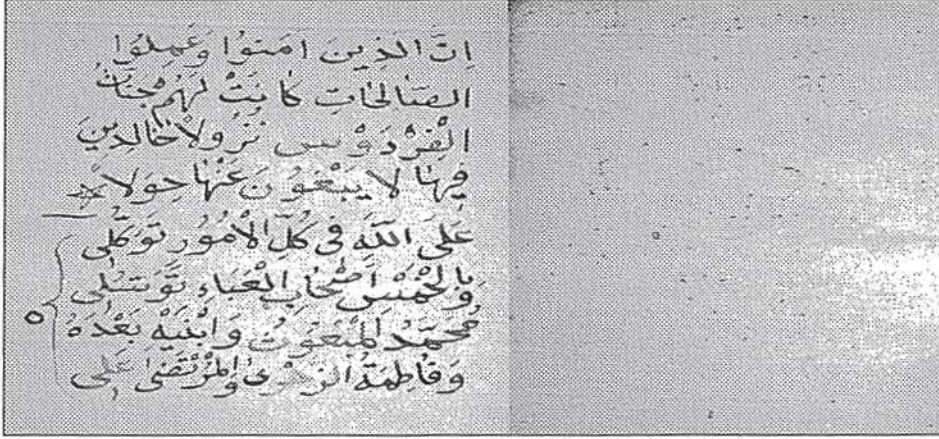 اِنَّ الذِينَ آمَنوُا وَعَمِلوُا
الصّالِحَاتِ كَا نَتْ لَهُمْ جَنَّاتُ
الْفِرْدَوْسِ نُزُولاً خَالِدِينَ
فِيهَا لاَ يَبْغوُنَ عَنْهَا حِوَلاً
عَلَى اللَّهِ فى كُلِّ الْاُموُرِ تَوَكُّلِى
وَبِالْخَمْسِ اَصْحَابِ الْعَبَاءِ تَوَسُّلِى
مُحَمَّدُ لْمَبْعوُثُ وَابْنَيْهِ بَعْدَهُ
وَفَاطِمَةُ الزَهْرَىٰ وَالمُرْتَضَىٰ عَلِى